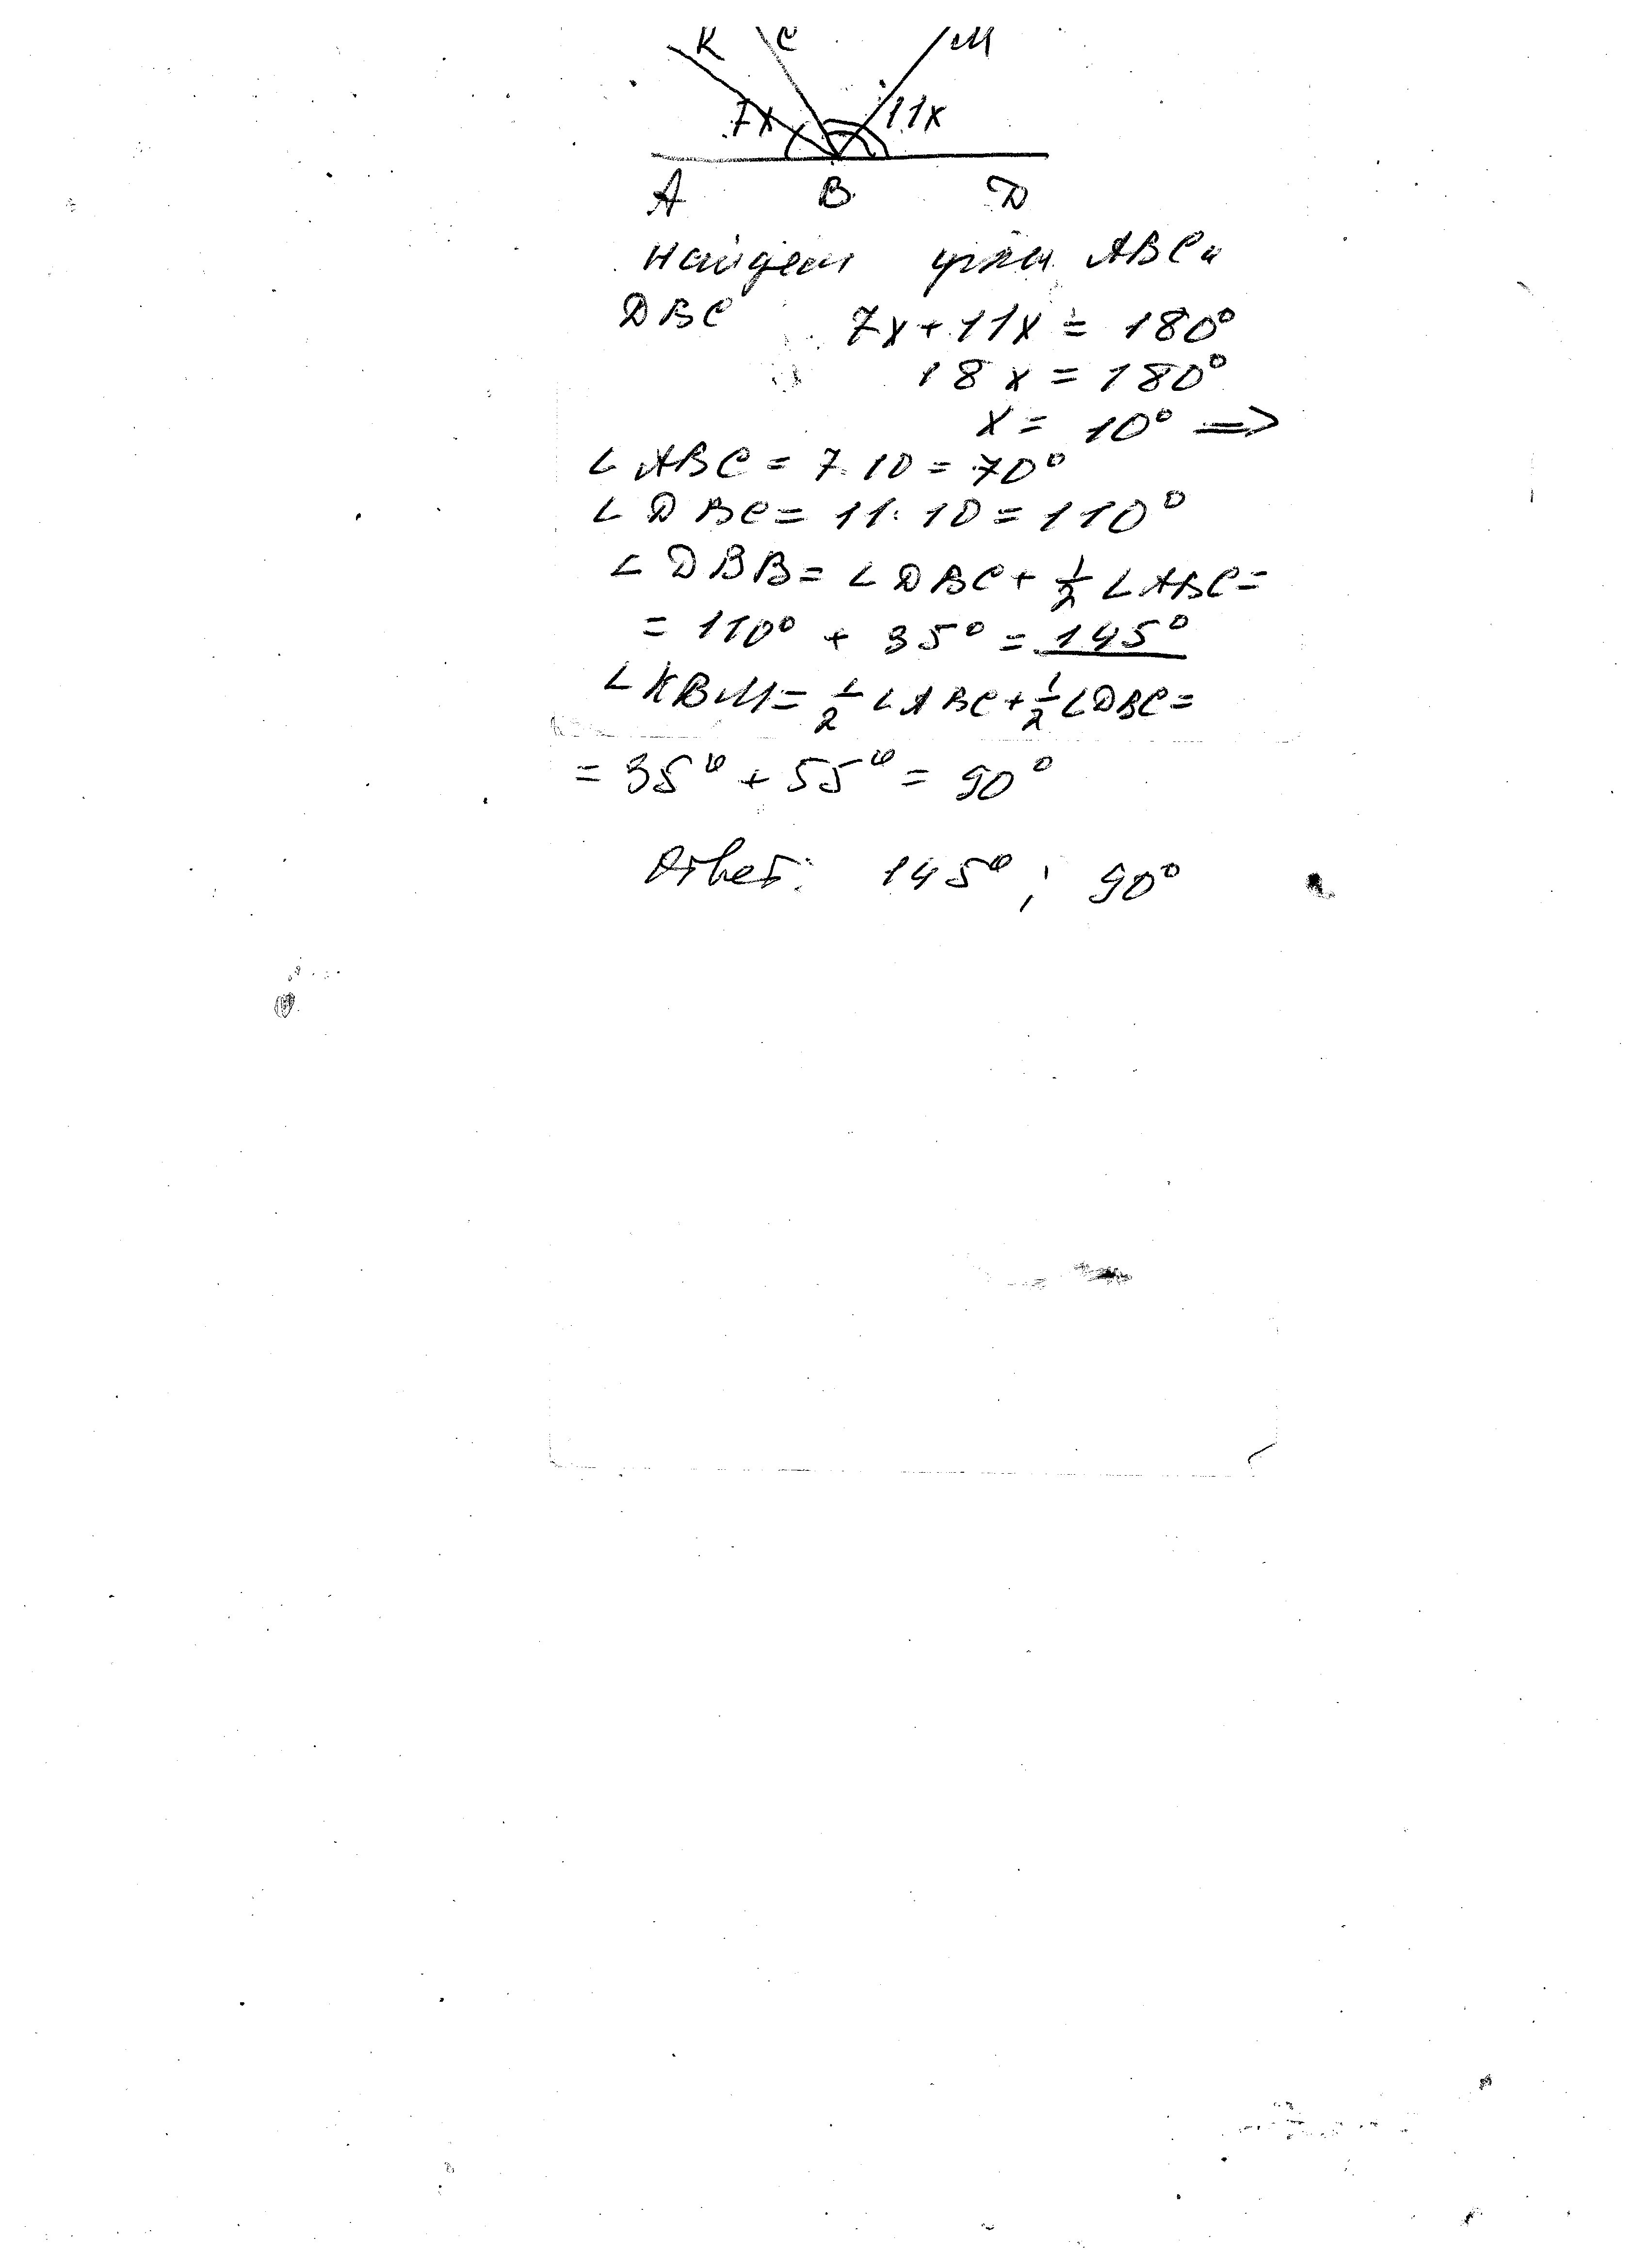 К С М
7x 11x
А В D
Найдем углы АВС и
DBC 7x + 11x = 180°
18x = 180°
x = 10° =>
∠ ABC = 7 · 10 = 70°
∠ DBC = 11 · 10 = 110°
∠ DBB = ∠ DBC + 1/2 ∠ ABC =
= 110° + 35° = 145°
∠ KBM = 1/2 ∠ ABC + 1/2 ∠ DBC =
= 35° + 55° = 90°
Ответ: 145° ; 90°